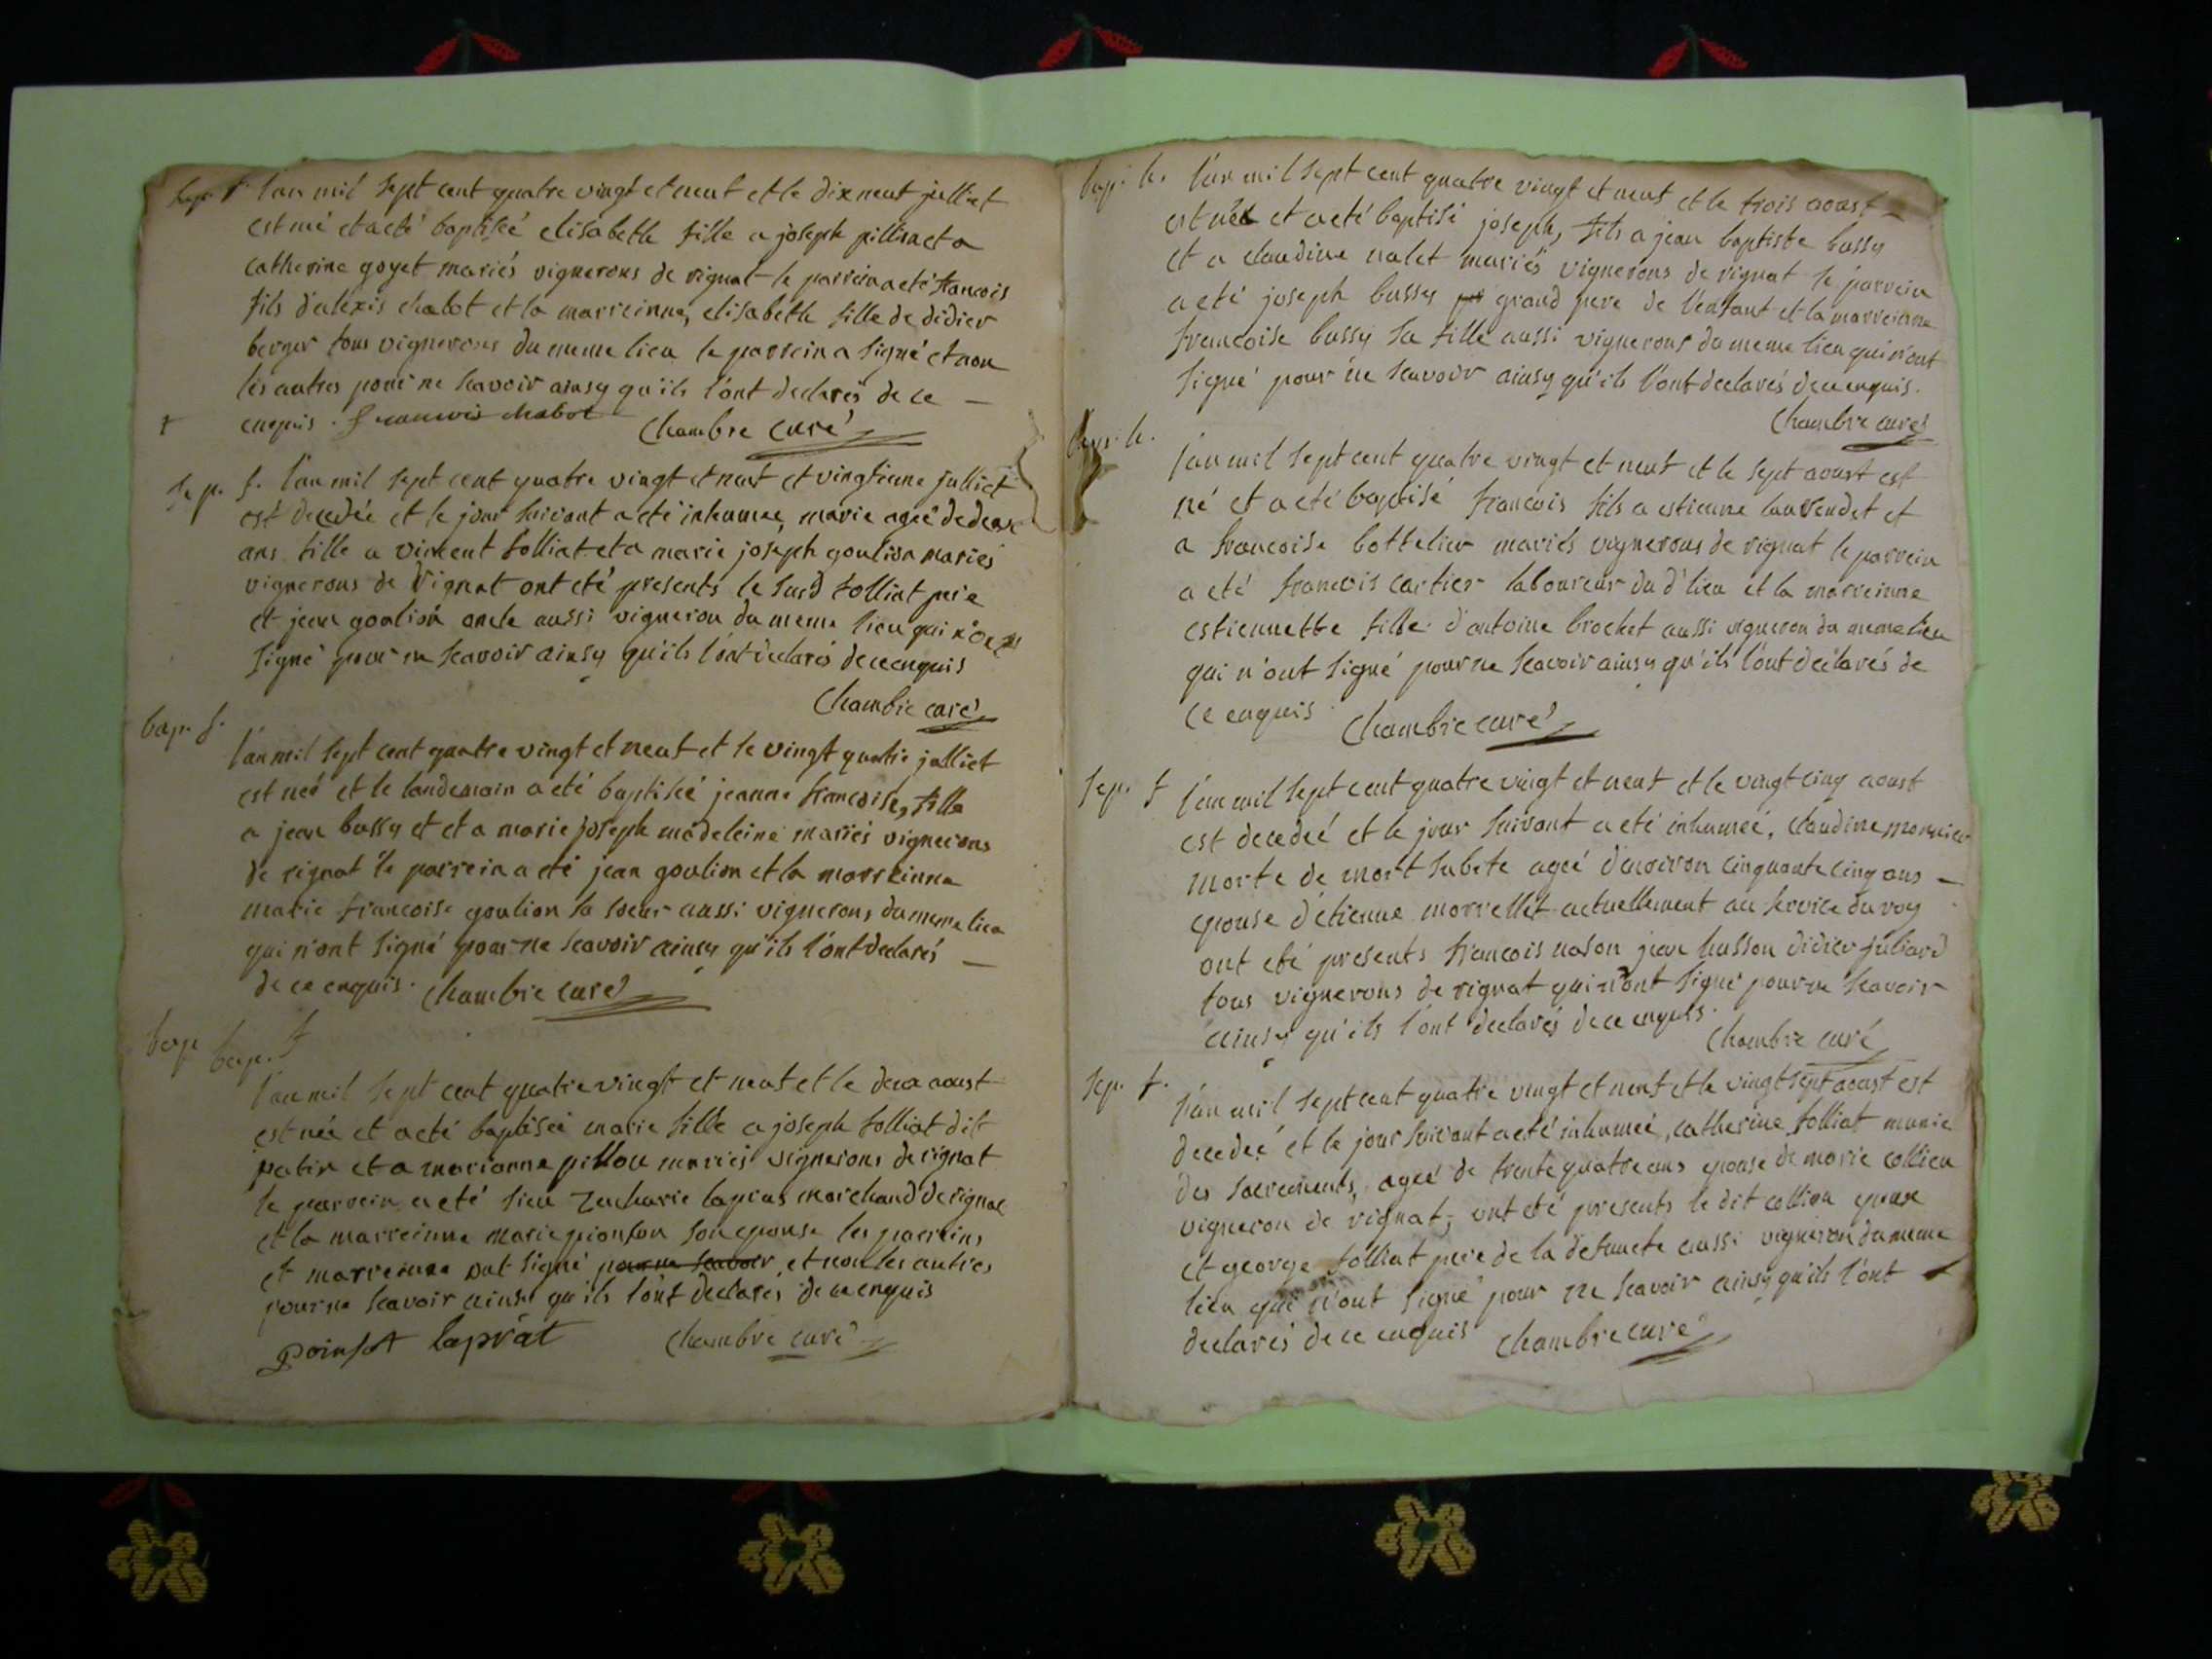 bap. f. l'an mil sept cent quatre vingt et neuf et le dix neuf julliet
est né et a eté baptiseé elisabeth fille a joseph pillion et a
catherine goyet mariés vignerons de rignat le parrein a eté francois
fils d'alexis chabot et la marreinne, elisabeth fille de didier
berger tous vignerons du meme lieu le parrein a signé et non
les autres pour ne scavoir ainsy qu'ils l'ont declarés de ce
enquis. francois chabot chambre curé
sep. f. l'an mil sept cent quatre vingt et neuf et vingtieme julliet
est decedeé et le jour suivant a eté inhumeé, marie ageé de deux
ans fille a vincent folliat et a marie joseph goulion mariés
vignerons de rignat ont eté presents le susd folliat pere
et jean goulion oncle aussi vigneron du meme lieu qui n'ont
signé pour ne scavoir ainsy qu'ils l'ont declarés de ce enquis
chambre curé
bap. f.
l'an mil sept cent quatre vingt et neuf et le vingt quatre julliet
est neé et le landemain a eté baptiseé jeanne francoise, fille
a jean bussy et et a marie joseph madeleine mariés vignerons
de rignat le parrein a eté jean goulion et la marreinne
marie francoise goulion sa soeur aussi vignerons du meme lieu
qui n'ont signé pour ne scavoir ainsy qu'ils l'ont declarés
de ce enquis. chambre curé
bap bap. f
l'an mil sept cent quatre vingt et neuf et le deux aoust
est neé et a eté baptiseé marie fille a joseph folliat dit
patin et a marianne pillou mariés vignerons de rignat
le parrein a eté sieur zacharie laprat marchand de rignat
et la marreinne marie son epouse les parreins
et marreinne ont signé pour ne scavoir et non les autres
pour ne scavoir ainsi qu'ils l'ont declarés de ce enquis
poinsot laprat chambre curé
bap. h. l'an mil sept cent quatre vingt et neuf et le trois aoust
est né et a eté baptisé joseph, fils a jean baptiste bussy
et a claudine nalet mariés vignerons de rignat le parrein
a eté joseph bussy grand pere de l'enfant et la marreinne
francoise bussy sa fille aussi vignerons du meme lieu qui n'ont
signé pour ne scavoir ainsy qu'ils l'ont declarés de ce enquis.
chambre curé
bap. h.
l'an mil sept cent quatre vingt et neuf et le sept aoust est
né et a eté baptisé francois fils a estienne lauvendet et
a francoise bottelier mariés vignerons de rignat le parrein
a eté francois cartier laboureur du d' lieu et la marreinne
estiennette fille d'antoine brochet aussi vigneron du meme lieu
qui n'ont signé pour ne scavoir ainsy qu'ils l'ont declarés de
ce enquis. chambre curé
sep. f l'an mil sept cent quatre vingt et neuf et le vingt cinq aoust
est decedeé et le jour suivant a eté inhumeé, claudine
morte de mort subite ageé denviron cinquante cinq ans
epouse d'etienne morrellet actuellement au service du roy
ont eté presents francois nason jean husson didier juliard
tous vignerons de rignat qui n'ont signé pour ne scavoir
ainsy qu'ils l'ont declarés de ce enquis.
chambre curé
sep. f. l'an mil sept cent quatre vingt et neuf et le vingt sept aoust est
decedeé et le jour suivant a eté inhumeé, catherine folliat munie
des sacrements, ageé de trente quatre ans epouse de marie collion
vigneron de rignat; ont eté presents le dit collion epoux
et george folliat pere de la defuncte aussi vigneron du meme
lieu qui n'ont signé pour ne scavoir ainsy qu'ils l'ont
declarés de ce enquis chambre curé